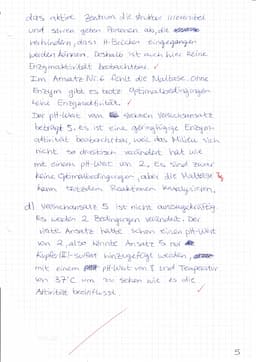 das aktive Zentrum die Struktur
und seinen geben Protonen ab, die
verhindern, dass H-Brücken eingegangen
werden können. Deshalb ist auch hier keine
Enzymaktivität beobachtbar. ✓
Im Ansatz Nr. 6 fehlt die Maltase. Ohne
Enzym gibt es trotz Optimalbedingungen
keine Enzymaktivität. ✓
Der pH-Wert vom Versuchsansatz
beträgt 5. Es ist eine geringfügige Enzym-
aktivität beobachtbar, weil das Milieu sich
nicht so drastisch verändert hat wie
mit einem pH-Wert von 2. Es sind zwar
keine Optimalbedingungen, aber die Maltase
kann trotzdem Reaktionen katalysieren.
d) Versuchsansatz 5 ist nicht aussagekräftig.
Es werden 2 Bedingungen verändert. Der
Ansatz hatte schon einen pH-Wert
von 2, also könnte Ansatz 5 nur
Kupfer(II)-sulfat hinzugefügt werden,
mit einem pH-Wert von 7 und Temperatur
von 37°C um zu sehen wie es die
Aktivität beeinflusst.
5